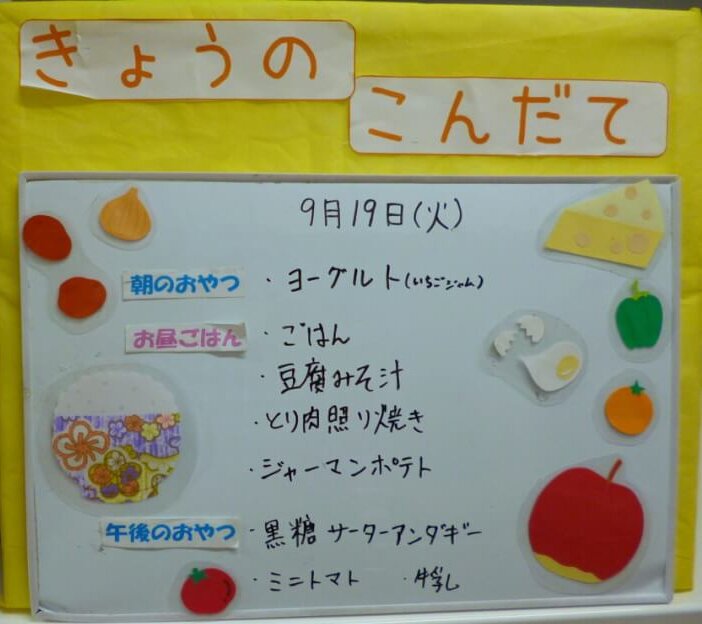 きょうの
こんだて
9月19日(火)
朝のおやつ ・ヨーグルト(いちごジャム)
お昼ごはん ・ごはん
・豆腐みそ汁
・とり肉照り焼き
・ジャーマンポテト
午後のおやつ ・黒糖サーターアンダギー
・ミニトマト ・牛乳